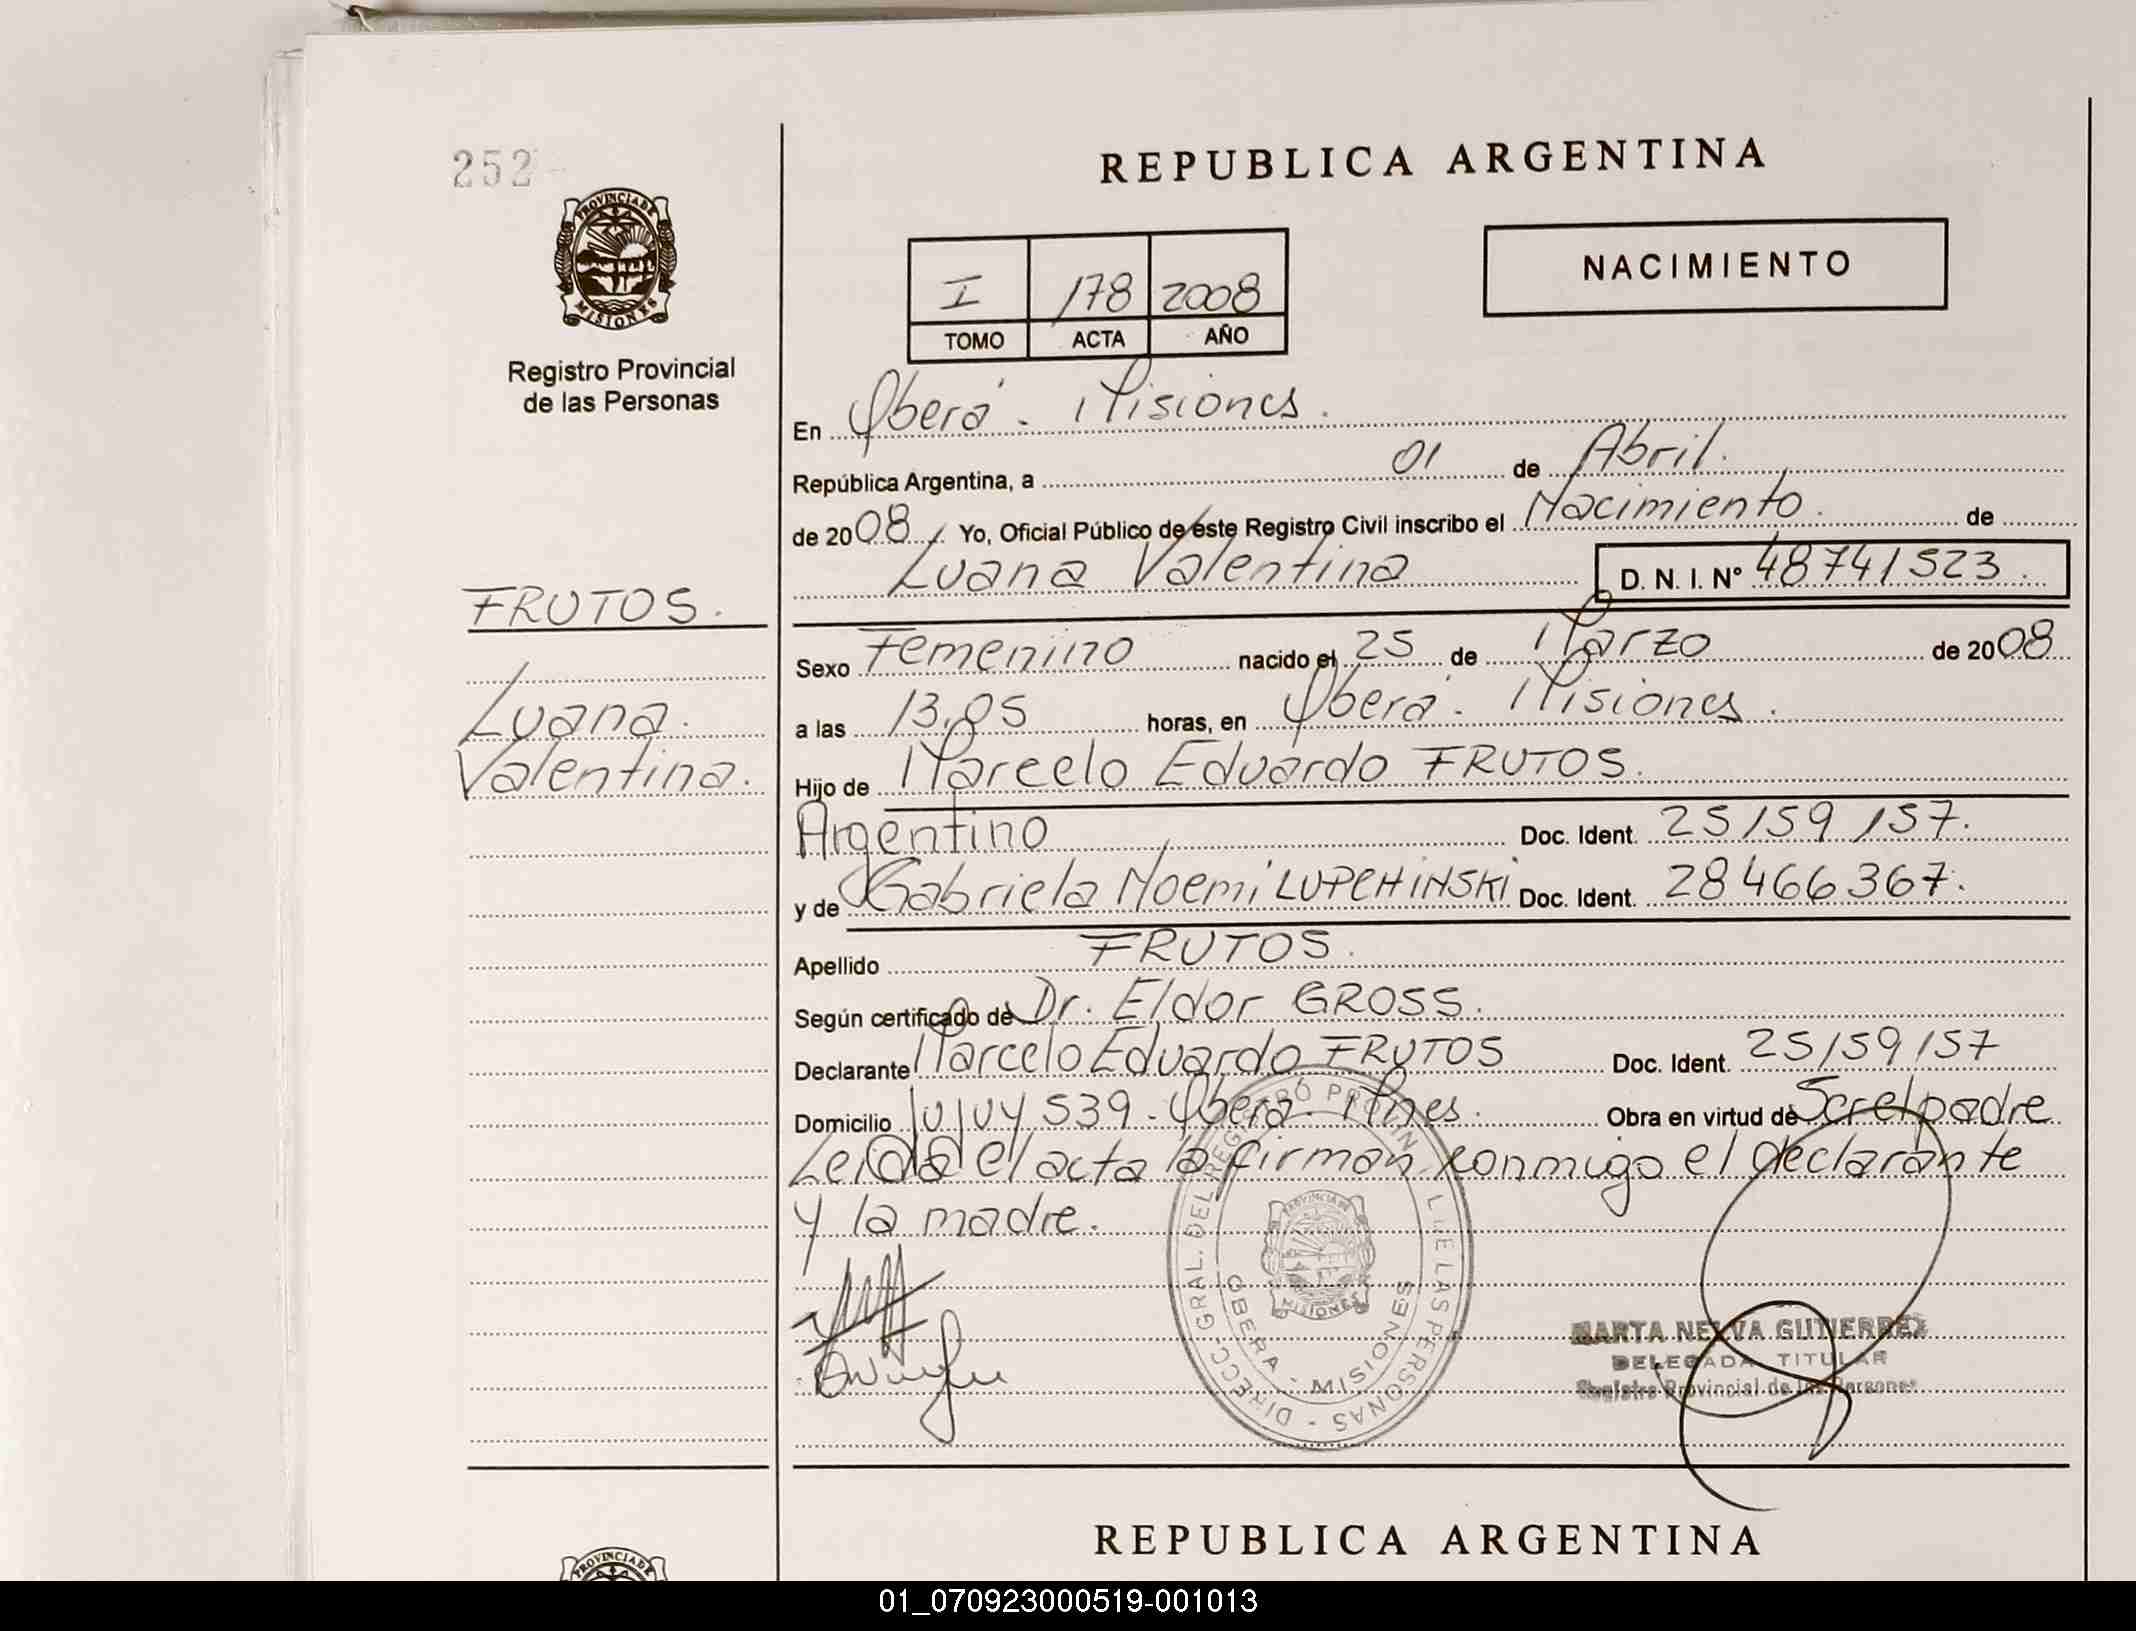 252
PROVINCIA DE
MISIONES
Registro Provincial
de las Personas
FRUTOS.
Luana
Valentina.
REPUBLICA ARGENTINA
I 178 2008
TOMO ACTA AÑO
NACIMIENTO
En Oberá - Misiones.
República Argentina, a 01 de Abril.
de 2008. Yo, Oficial Público de este Registro Civil inscribo el Nacimiento. de
Luana Valentina D. N. I. Nº 48741523.
Sexo Femenino nacido el 25 de Marzo de 2008
a las 13,05 horas, en Oberá - Misiones.
Hijo de Marcelo Eduardo FRUTOS.
Argentino Doc. Ident. 25159157.
y de Gabriela Noemí LUPCHINSKI Doc. Ident. 28466367.
Apellido FRUTOS.
Según certificado de Dr. Eldor GROSS.
Declarante Marcelo Eduardo FRUTOS Doc. Ident. 25159157
Domicilio Jujuy 539 - Oberá - Mnes. Obra en virtud de Ser el padre
Leida el acta la firman conmigo el declarante
y la madre.
DIRECC. GRAL. DEL REGISTRO PROVINCIAL DE LAS PERSONAS
PROVINCIA DE
MISIONES
OBERA - MISIONES
MARTA NELVA GUTIERREZ
DELEGADA TITULAR
Registro Provincial de las Personas
REPUBLICA ARGENTINA
PROVINCIA DE
01_070923000519-001013